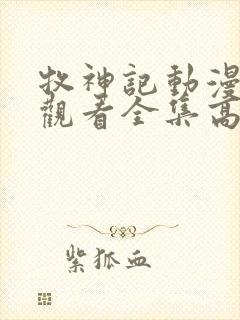 牧神記動漫
觀看全集高
紫狐血